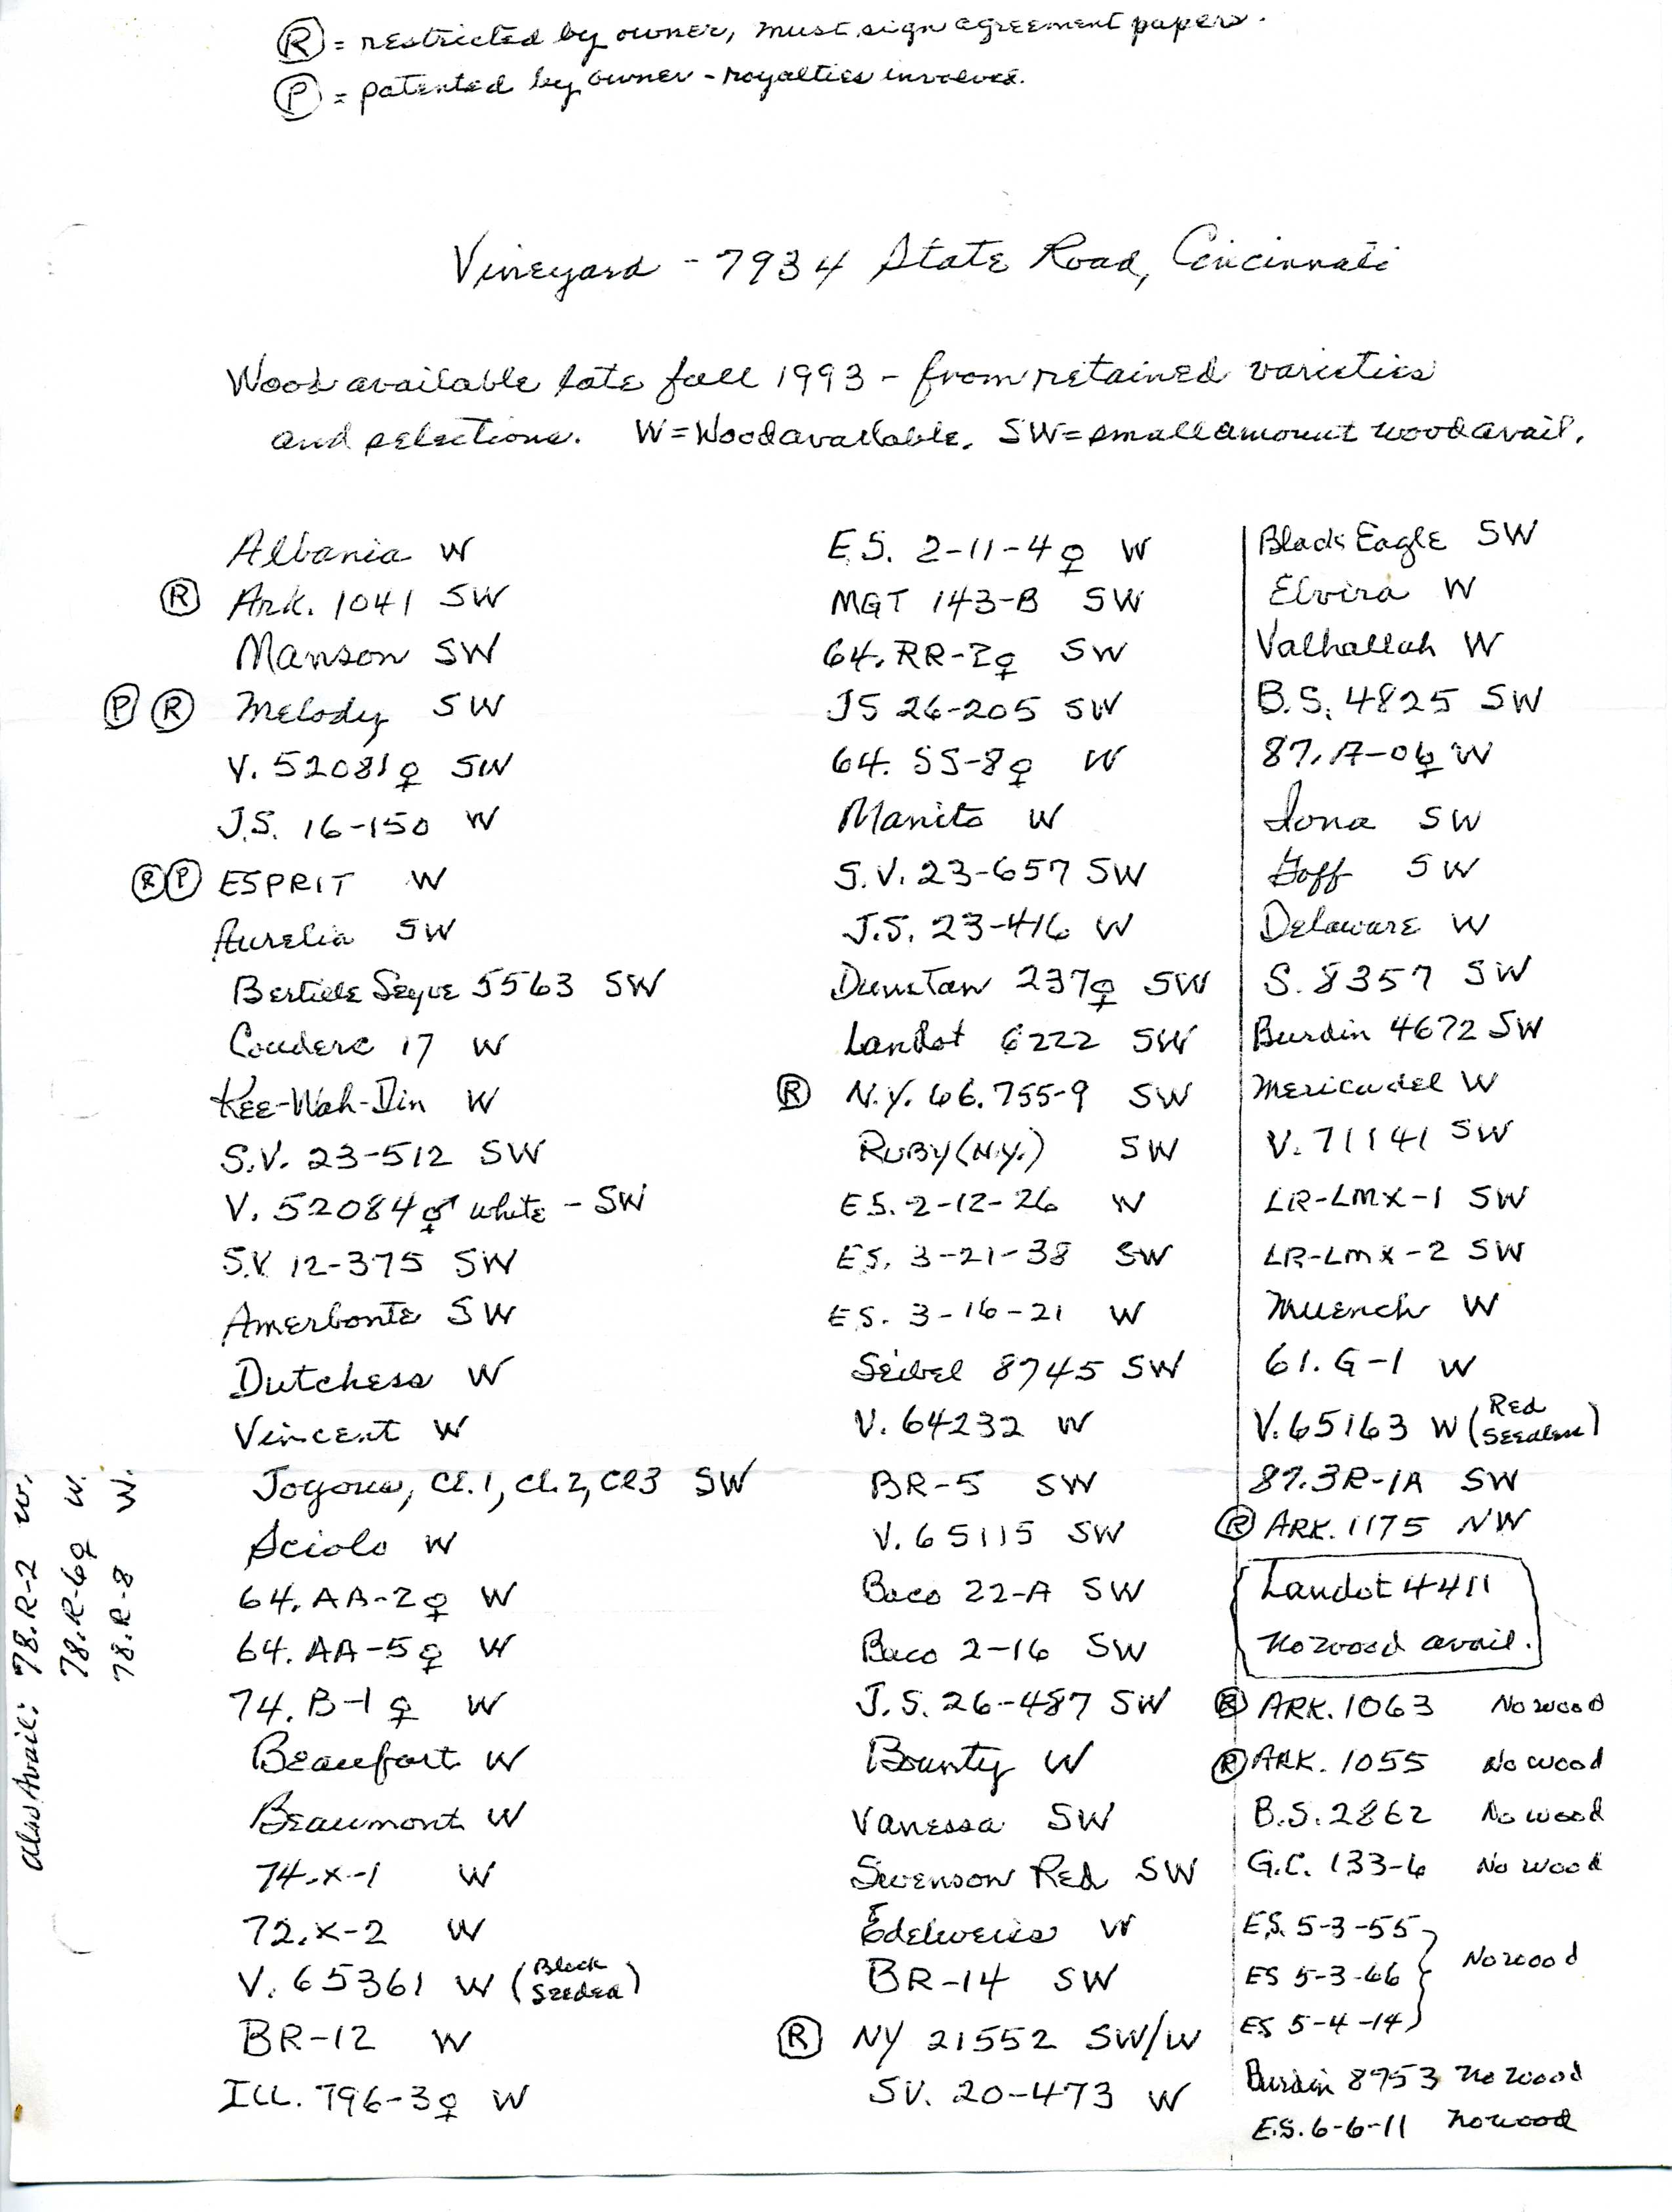 Ⓡ = restricted by owner, must sign agreement papers.
Ⓟ = patented by owner - royalties involved.
Vineyard - 7934 State Road, Cincinnati
Wood available late fall 1993 - from retained varieties
and selections. W = Wood available. SW = small amount wood avail.
Albania W
Ⓡ Ark. 1041 SW
Manson SW
Ⓟ Ⓡ Melody SW
V. 52081♀ SW
J.S. 16-150 W
Ⓡ Ⓟ ESPRIT W
Aurelia SW
Bertille Seyve 5563 SW
Couderc 17 W
Kee-Wah-Din W
S.V. 23-512 SW
V. 52084⚥ white - SW
S.V. 12-375 SW
Amerbonte SW
Dutchess W
Vincent W
Joyous, Cl.1, Cl.2, Cl3 SW
Sciolo W
64. AA-2♀ W
64. AA-5♀ W
74. B-1♀ W
Beaufort W
Beaumont W
74.X-1 W
72.X-2 W
V. 65361 W (Black Seeded)
BR-12 W
ILL. 796-3♀ W
E.S. 2-11-4♀ W
MGT 143-B SW
64. RR-2♀ SW
JS 26-205 SW
64. SS-8♀ W
Manito W
S.V. 23-657 SW
J.S. 23-416 W
Dunstan 237♀ SW
Landot 6222 SW
Ⓡ N.Y. 66.755-9 SW
Ruby (N.Y.) SW
E.S. 2-12-26 W
E.S. 3-21-38 SW
E.S. 3-16-21 W
Seibel 8745 SW
V. 64232 W
BR-5 SW
V. 65115 SW
Baco 22-A SW
Baco 2-16 SW
J.S. 26-487 SW
Bounty W
Vanessa SW
Swenson Red SW
Edelweiss W
BR-14 SW
Ⓡ NY 21552 SW/W
SV. 20-473 W
Black Eagle SW
Elvira W
Valhallah W
B.S. 4825 SW
87.A-06♀ W
Iona SW
Goff SW
Delaware W
S. 8357 SW
Burdin 4672 SW
Mericadel W
V. 71141 SW
LR-LMX-1 SW
LR-LMX-2 SW
Muench W
61. G-1 W
V. 65163 W (Red Seedless)
87.3R-1A SW
Ⓡ ARK. 1175 NW
Landot 4411
No wood avail.
Ⓡ ARK. 1063 No wood
Ⓡ ARK. 1055 No wood
B.S. 2862 No wood
G.C. 133-6 No wood
E.S. 5-3-55
ES 5-3-66 } No wood
ES 5-4-14
Burdin 8753 No wood
E.S. 6-6-11 No wood
Also Avail: 78.R-2 W.
78.R-6♀ W.
78.R-8 W.